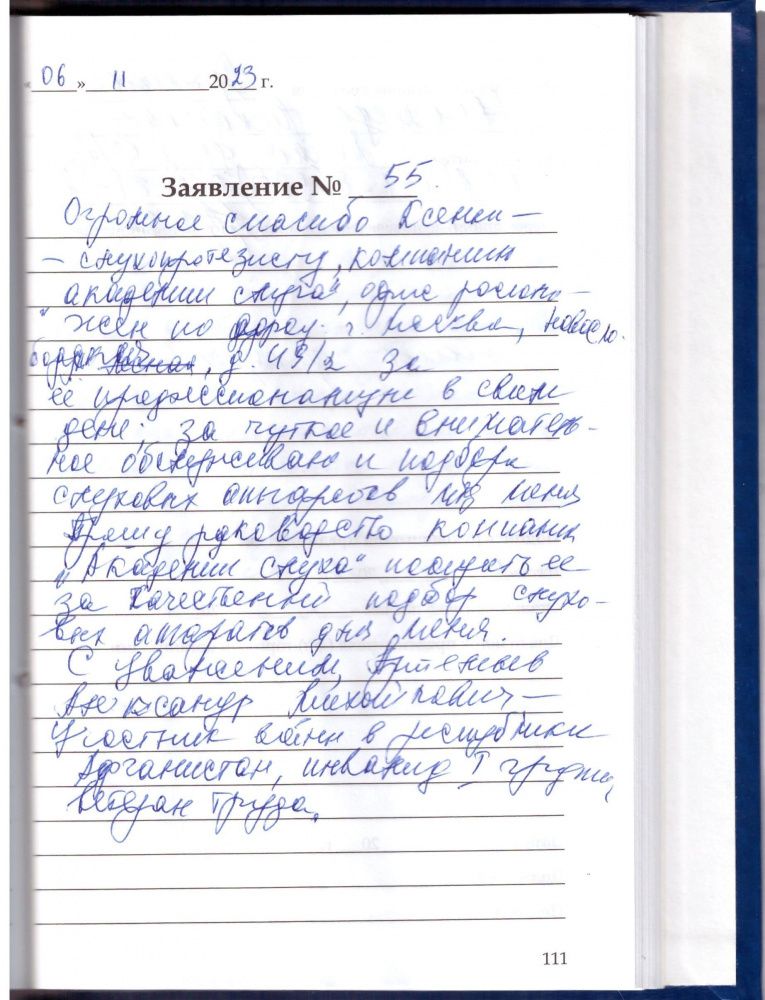 « 06 » 11 2023 г.
Заявление № 55
Огромное спасибо Ксении –
– слухопротезисту, компании
"академии слуха", офис располо-
жен по адресу: г. Москва, Новосло-
бодская, д. 49/2 За
её профессионализм в своём
деле, за чуткое и вниматель-
ное обслуживание и подбора
слуховых аппаратов для меня
Прошу руководство компании
"Академии слуха" поощрить ее
за качественный подбор слухо-
вых аппаратов для меня.
С уважением, Артемьев
Александр Михайлович –
Участник войны в республике
Афганистан, инвалид I группы,
ветеран труда.
111